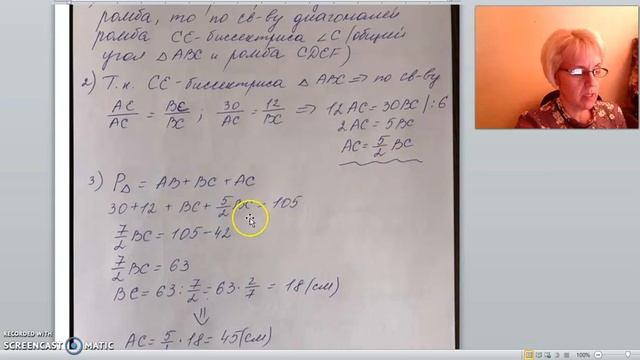 ромба, то по св-ву диагоналей
ромба CE-биссектриса ∠C (общий
угол △ABC и ромба CDEF)
2) Т.к. CE-биссектриса △ABC ⇒ по св-ву
AE/AC = BE/BC ; 30/AC = 12/BC ⇒ 12AC = 30BC |:6
2AC = 5BC
AC = 5/2 BC
3) P△ = AB + BC + AC
30+12 + BC + 5/2 BC = 105
7/2 BC = 105 - 42
7/2 BC = 63
BC = 63 : 7/2 = 63 · 2/7 = 18 (см)
⇓
AC = 5/ · 18 = 45 (см)
RECORDED WITH
SCREENCAST MATIC
100%